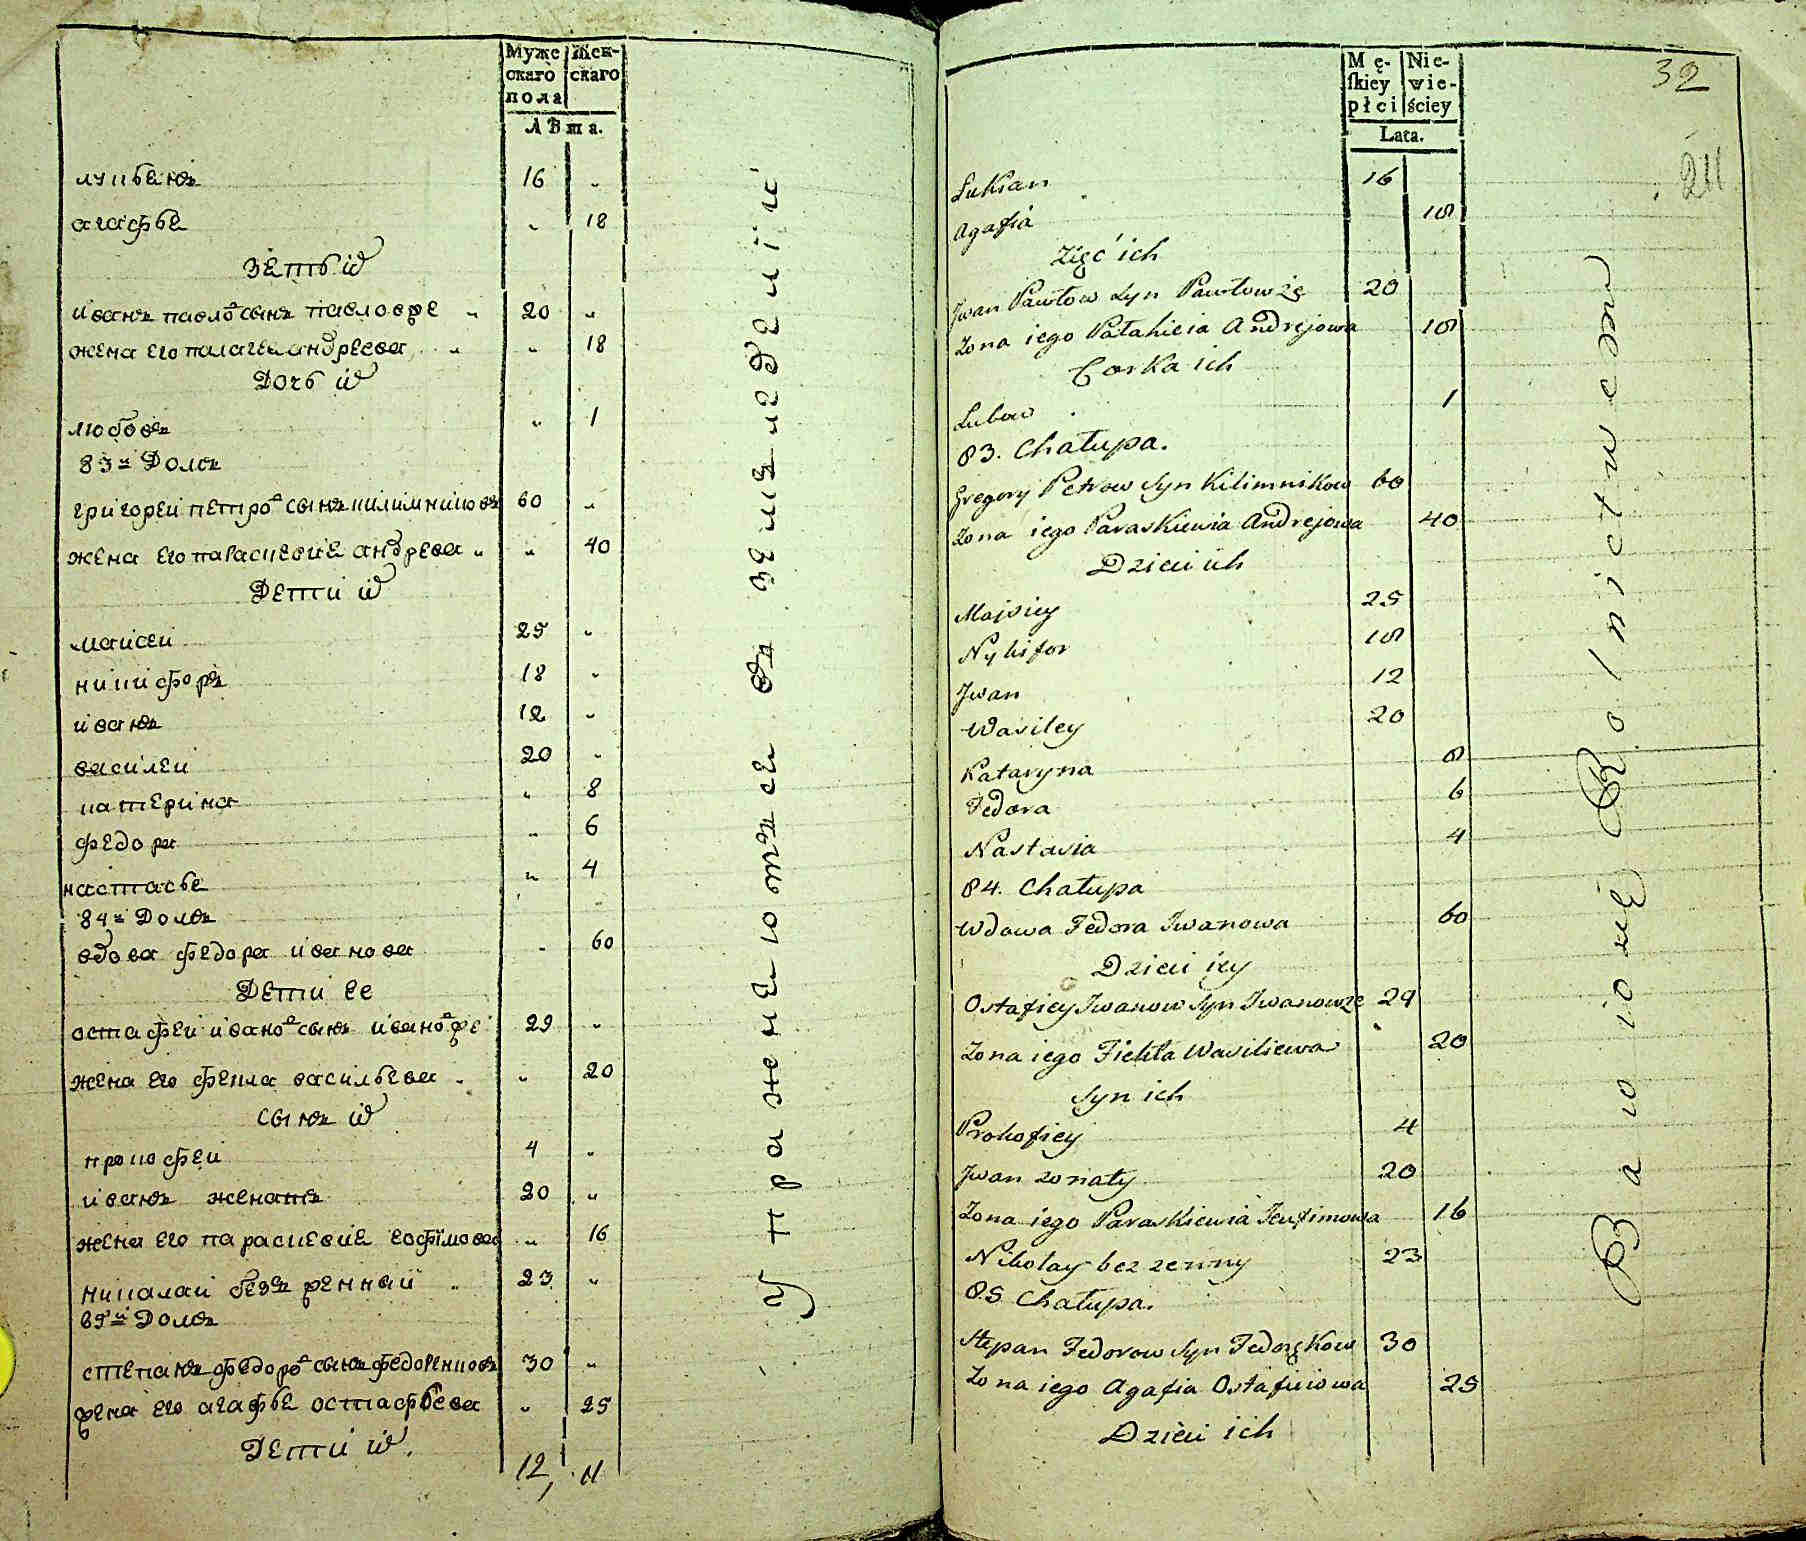 Муже скаго пола
Жен- скаго
Лѣта.
лукьянъ 16 „
агафья „ 18
зеть их
иванъ павловъ сынъ павловже „ 20 „
жена его палагея андреева „ „ 18
Дочь их
любовъ „ 1
83й Домъ
григореи петровъ сынъ килимниковъ 60 „
жена его парасковия андреева „ „ 40
Дети их
маисеи 25 „
никифоръ 18 „
иванъ 12 „
василеи 20 „
катерина „ 8
федора „ 6
настасья „ 4
84й Домъ
вдова федора иванова „ 60
Дети ее
остафеи ивановъ сынъ ивановже 29 „
жена его фекла васильева „ „ 20
сынъ их
прокофеи 4 „
иванъ женатъ 20 „
жена его парасковия ефимова „ 16
николаи безженныи „ 23 „
85й Домъ
степанъ федоровъ сынъ федоренковъ 30 „
жена его агафья остафьева „ 25
Дети их.
12, 11
Упражнеютъся въ земледелии
Mę- ſkiey płci
Nie- wie- ściey
Lata.
32
211
Lukian 16
Agafia 18
Zięć ich
Jwan Pawłow syn Pawłowże 20
Żona iego Pałahieia Andrejowa 18
Corka ich
Lubow 1
83. Chałupa.
Gregory Petrow syn Kilimnikow 60
Żona iego Paraskiewia Andrejowa 40
Dzieci ich
Mojsiey 25
Nykifor 18
Jwan 12
Wasiley 20
Kataryna 8
Fedora 6
Nastasia 4
84. Chałupa
Wdowa Fedora Jwanowa 60
Dzieci iey
Ostafiey Jwanow syn Jwanowże 29
Żona iego Fiekła Wasiliewa 20
Syn ich
Prokofiey 4
Jwan żonaty 20
Żona iego Paraskiewia Jeufimowa 16
Nikołay bez żenny 23
85 Chałupa.
Stepan Fedorow syn Fedoŗkow 30
Żona iego Agafia Ostafiiowa 25
Dzieci ich
Bawione Rolnictwem